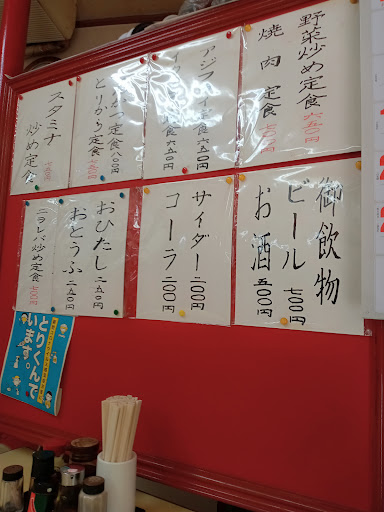 野菜炒め定食 六五〇円
焼肉定食 七〇〇円
アジフライ定食 六五〇円
定食 六五〇円
かつ定食 八〇〇円
とりから定食 七五〇円
スタミナ
炒め定食 七五〇円
御飲物
ビール 七〇〇円
お酒 五〇〇円
サイダー 二〇〇円
コーラ 二〇〇円
おひたし 二五〇円
おとうふ 二五〇円
ニラレバ炒め定食 七〇〇円
とりくんで
います。